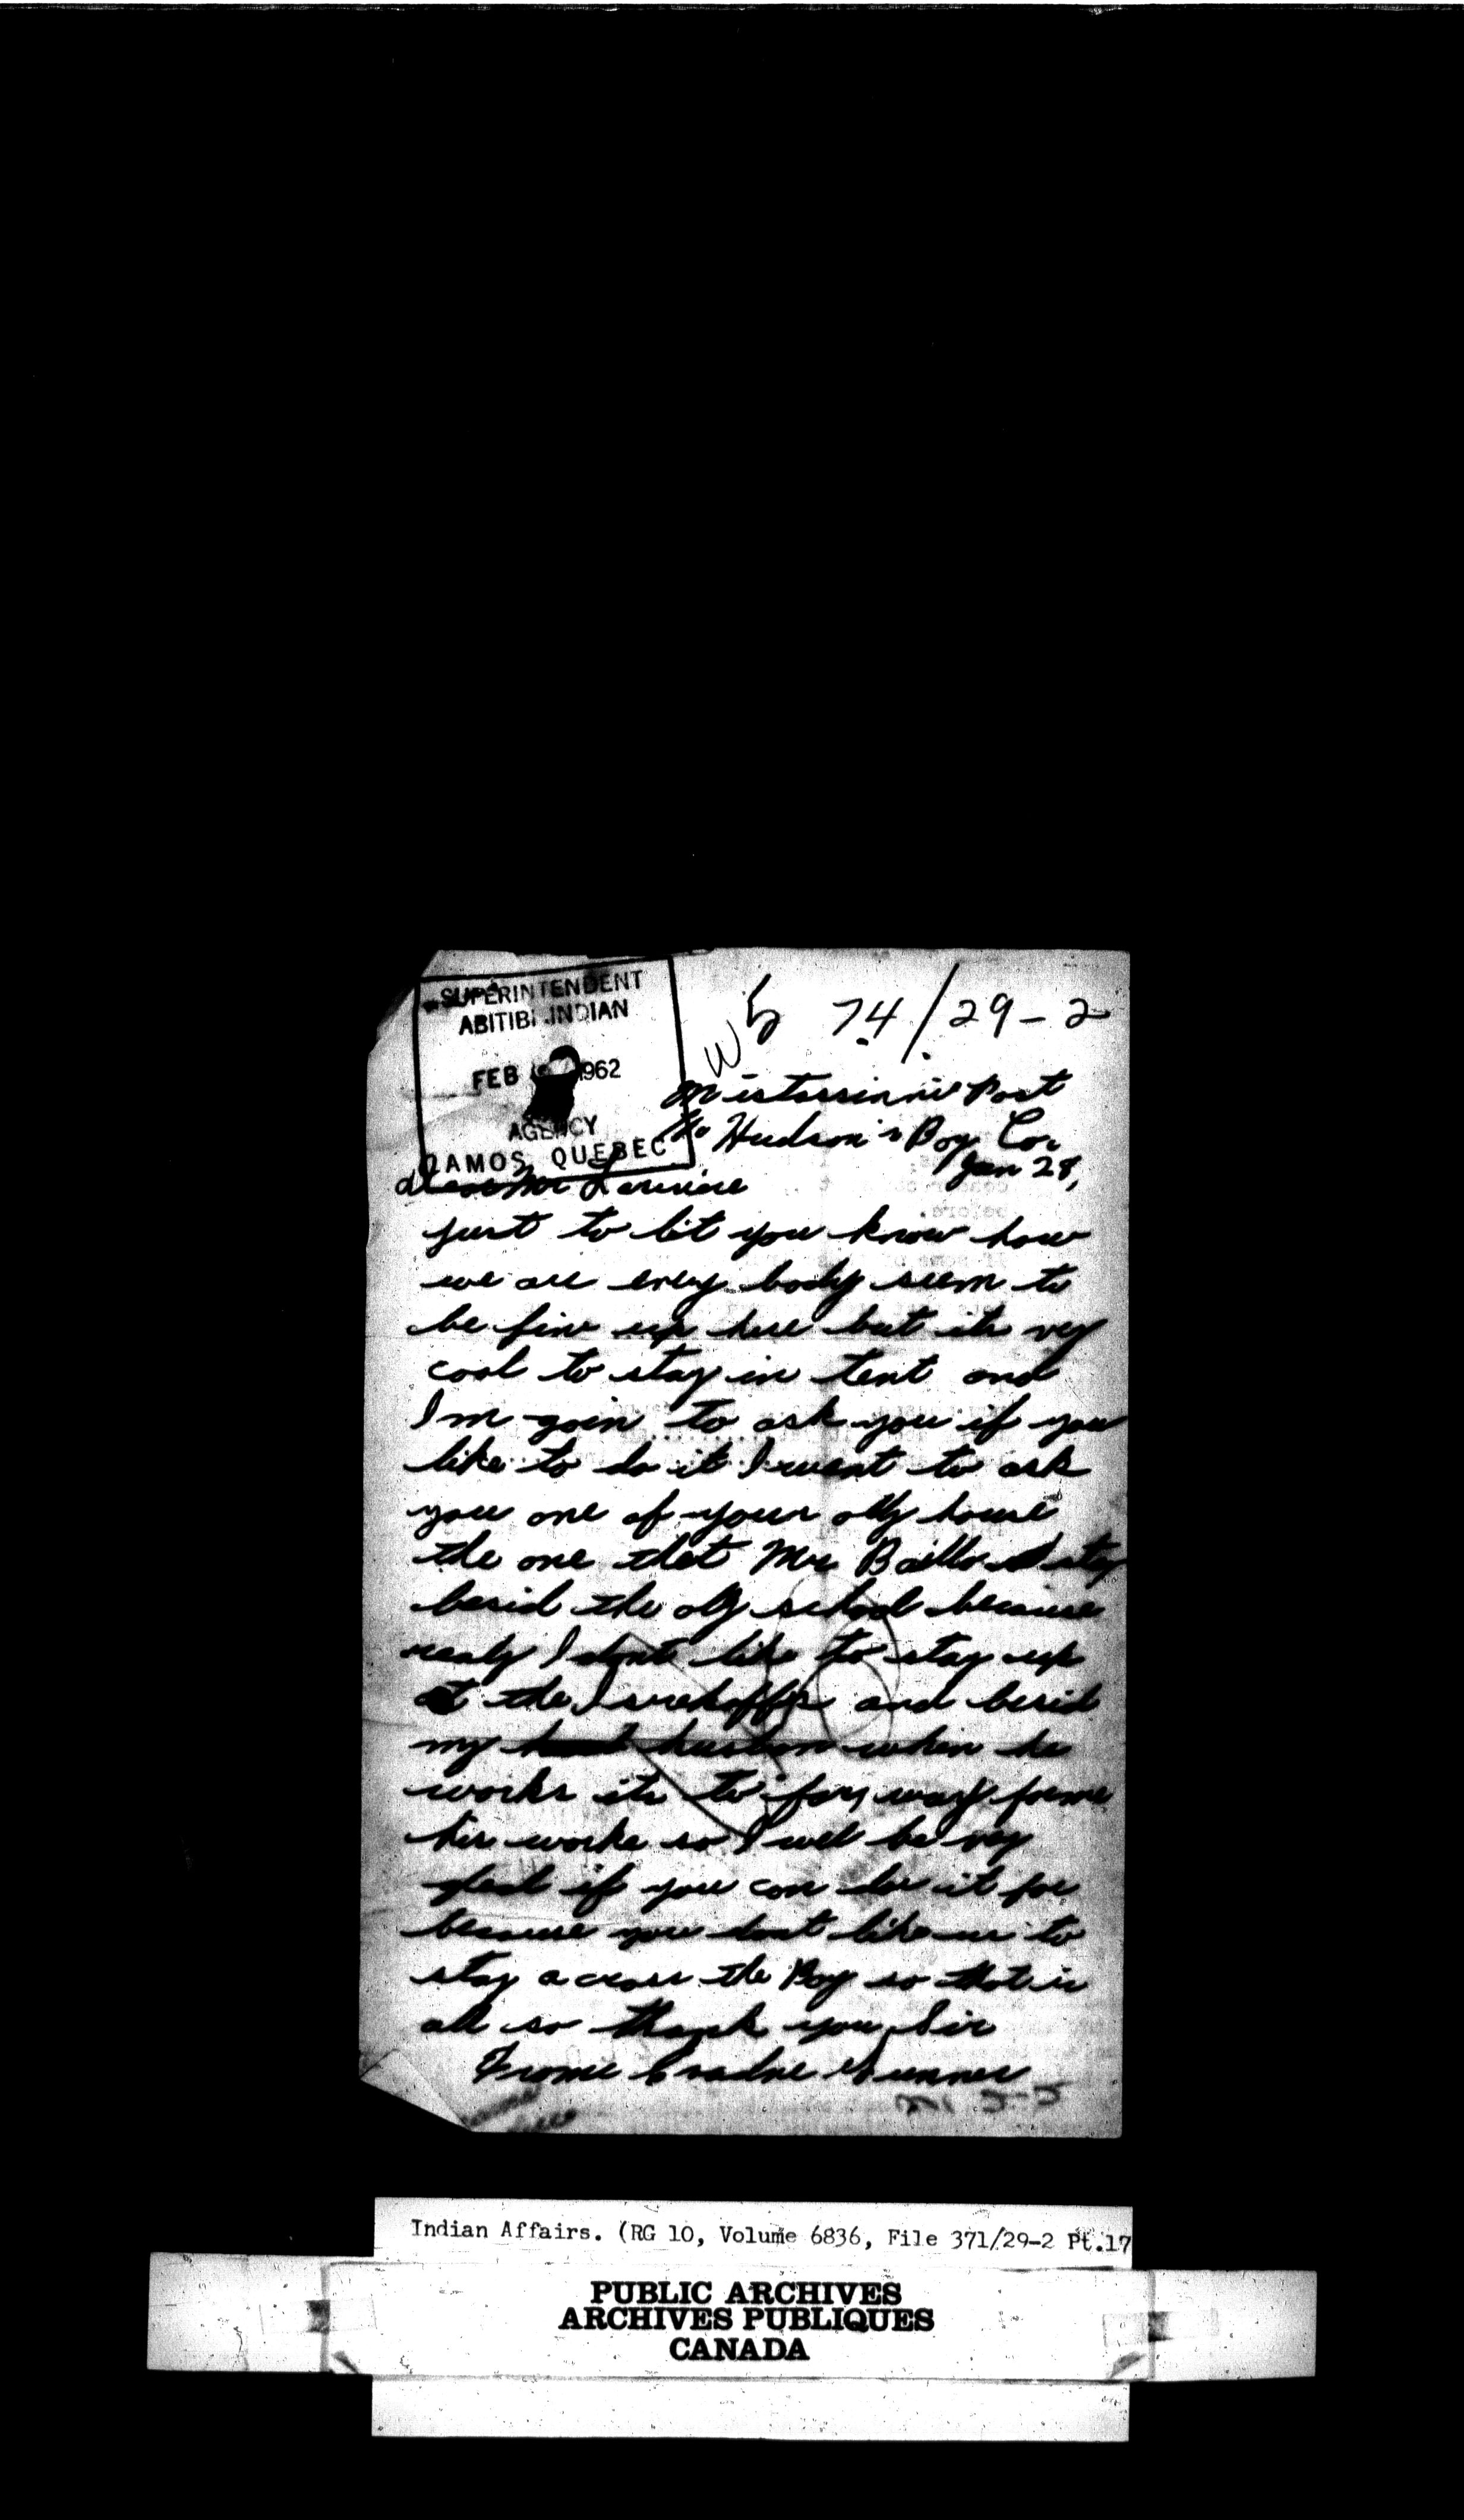 SUPERINTENDENT
ABITIBI INDIAN
FEB 1962
AGENCY
AMOS QUEBEC
74/29-2
Mistassinni Post
c/o Hudson's Bay Co.
Jan 28,
dear Mr Lariviere
just to lit you know how
we are every body seem to
be fine up here but its vey
cool to stay in tent and
I'm goin to ask you if you
like to do it I want to ask
you one of your olly house
the one that Mr Baillo stay
besid the olly school because
realy I dont like to stay up
at the and besid
my husban when he
works its to far way forme
his worke so I will be vey
glad if you can do it for
because you dont like us to
stay across the Bay so that is
all so thank you Sir
Frome Evadne Gunner
Indian Affairs. (RG 10, Volume 6836, File 371/29-2 Pt.17
PUBLIC ARCHIVES
ARCHIVES PUBLIQUES
CANADA